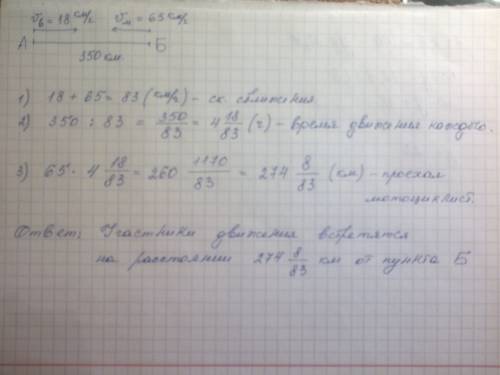 Vв = 18 км/ч Vм = 65 км/ч
А Б
350 км.
1) 18 + 65 = 83 (км/ч) - ск. сближения.
2) 350 : 83 = 350/83 = 4 18/83 (ч) - время движения каждого.
3) 65 · 4 18/83 = 260 1170/83 = 274 8/83 (км) - проехал
мотоциклист.
Ответ: Участники движения встретятся
на расстоянии 274 8/83 км от пункта Б